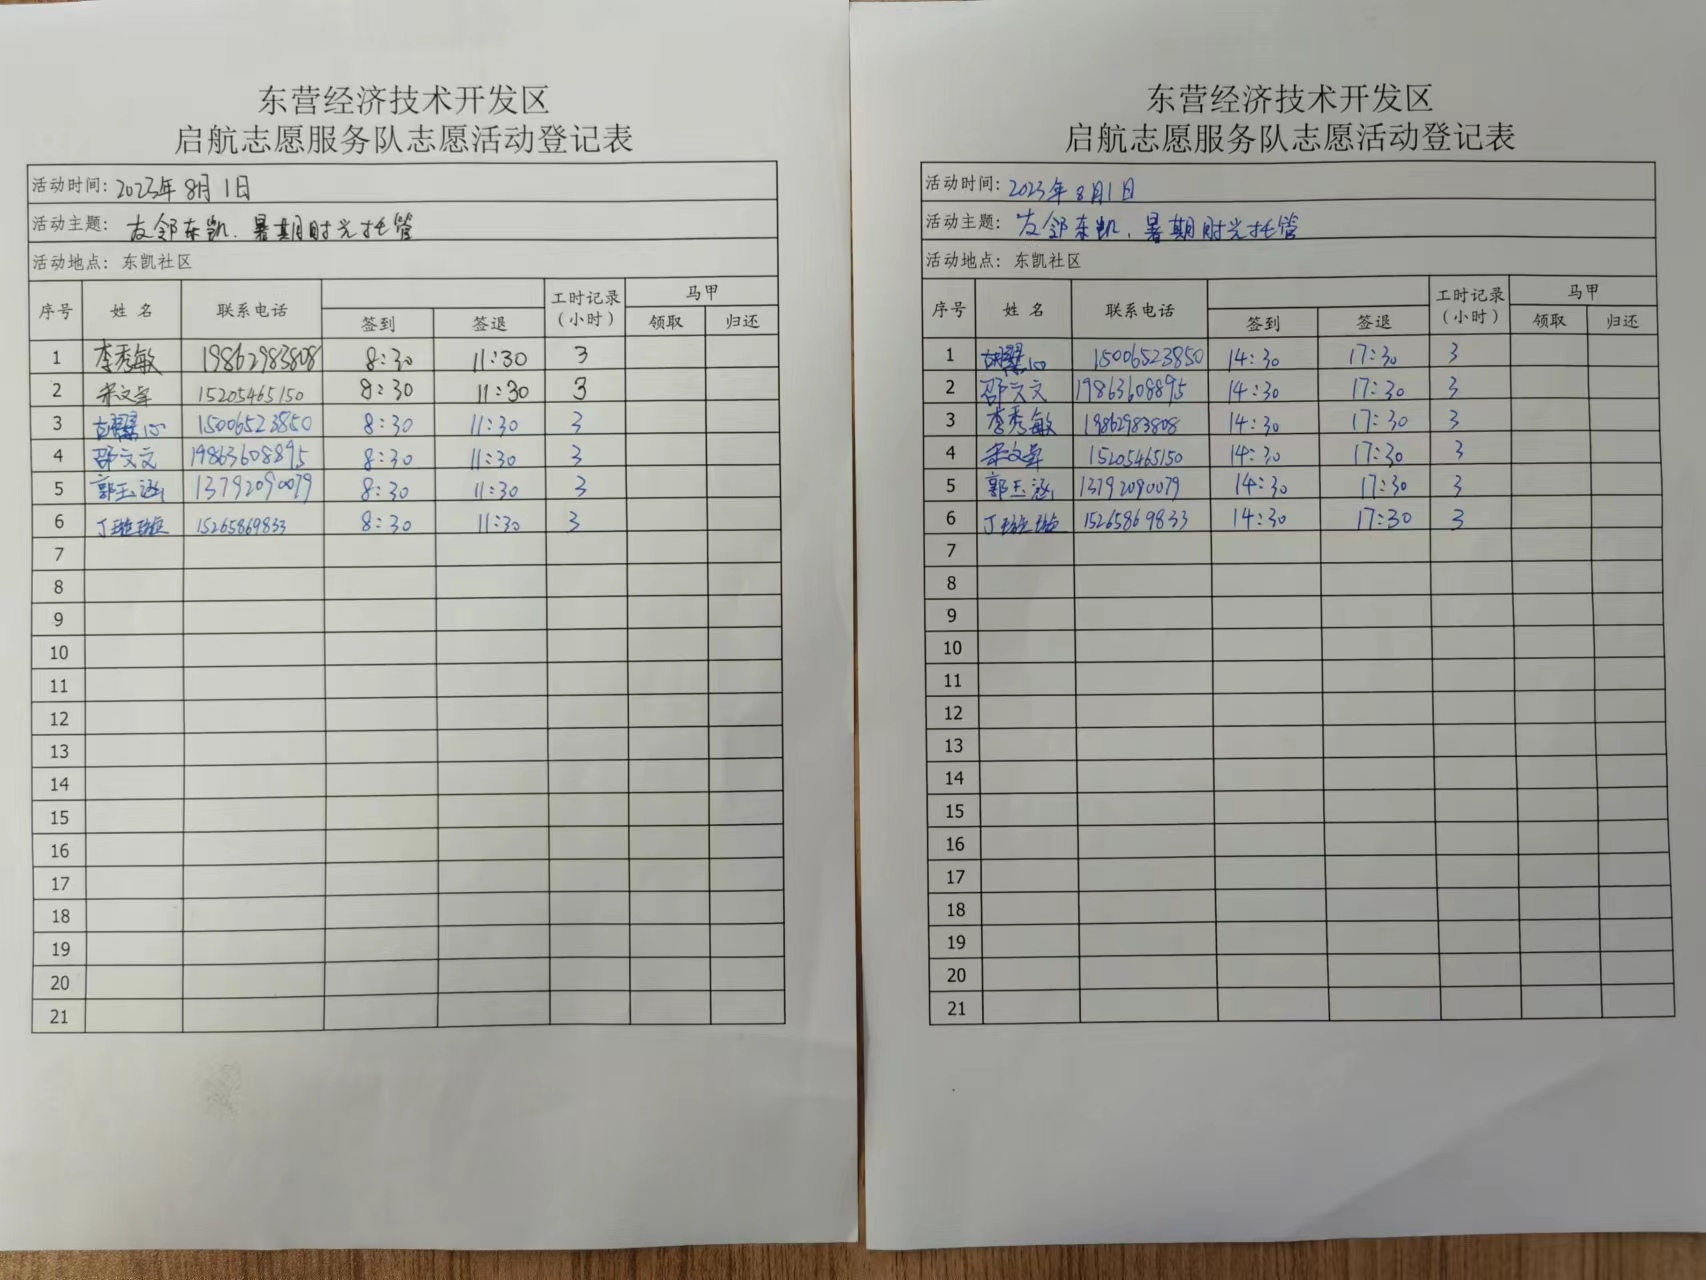 东营经济技术开发区
启航志愿服务队志愿活动登记表
活动时间：2023年8月1日
活动主题：友邻东凯.暑期时光托管
活动地点：东凯社区
序号 姓名 联系电话 签到 签退 工时记录（小时） 马甲 领取 归还
1 李秀敏 19862983808 8:30 11:30 3
2 宋文卓 15205465150 8:30 11:30 3
3 胡 心 15006523850 8:30 11:30 3
4 邵文文 19863608895 8:30 11:30 3
5 郭玉涵 13792090079 8:30 11:30 3
6 丁璇璇 15265869833 8:30 11:30 3
7
8
9
10
11
12
13
14
15
16
17
18
19
20
21
东营经济技术开发区
启航志愿服务队志愿活动登记表
活动时间：2023年8月1日
活动主题：友邻东凯.暑期时光托管
活动地点：东凯社区
序号 姓名 联系电话 签到 签退 工时记录（小时） 马甲 领取 归还
1 胡 心 15006523850 14:30 17:30 3
2 邵文文 19863608895 14:30 17:30 3
3 李秀敏 19862983808 14:30 17:30 3
4 宋文卓 15205465150 14:30 17:30 3
5 郭玉涵 13792090079 14:30 17:30 3
6 丁璇璇 15265869833 14:30 17:30 3
7
8
9
10
11
12
13
14
15
16
17
18
19
20
21